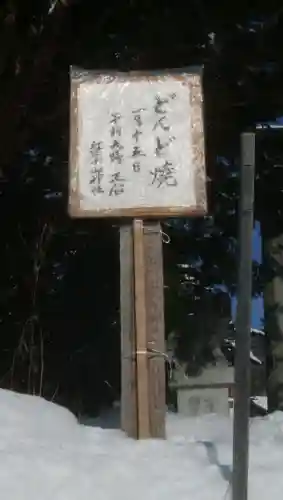 どんど焼
一月十五日
午前九時 点火
神社